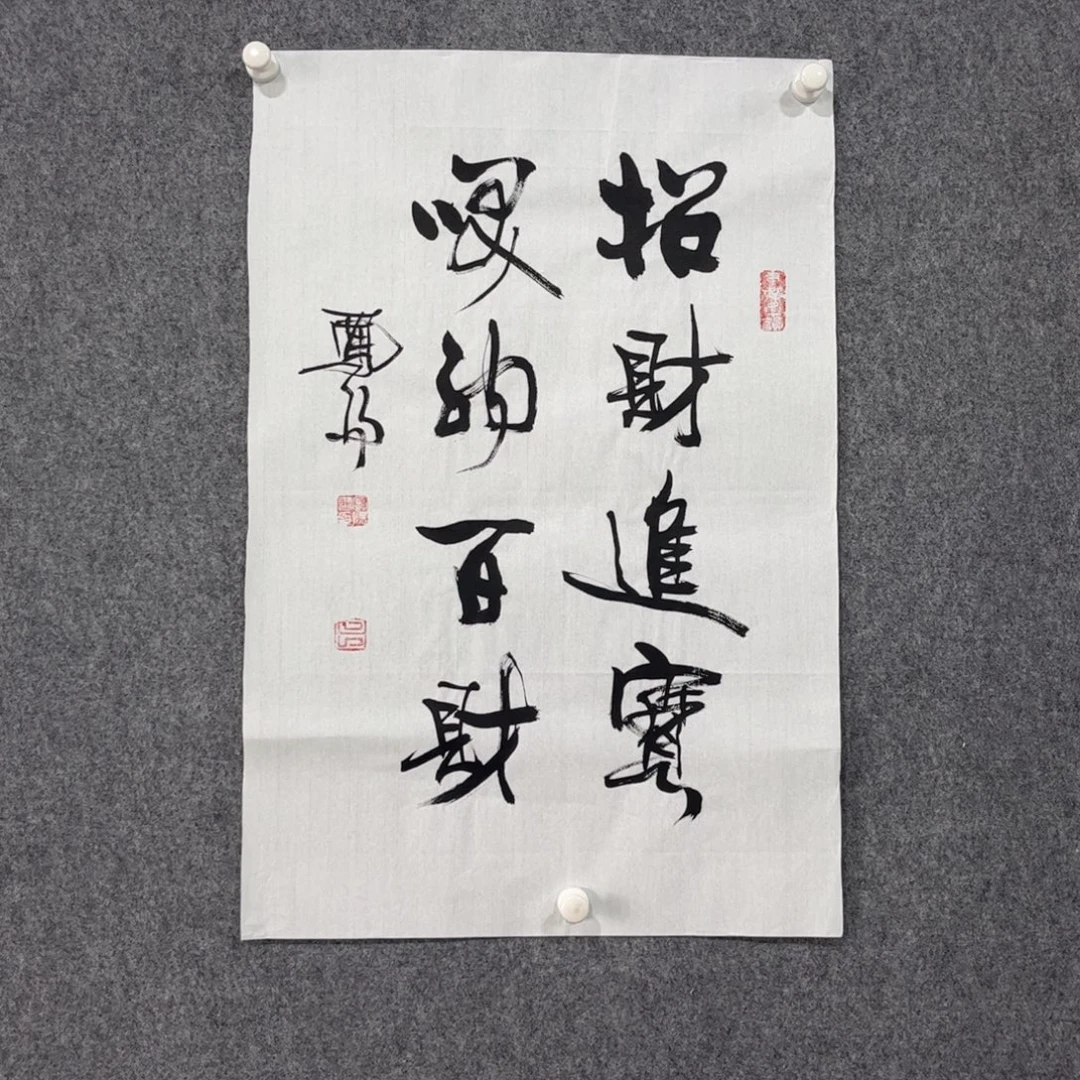 招財進寶
吸納百財